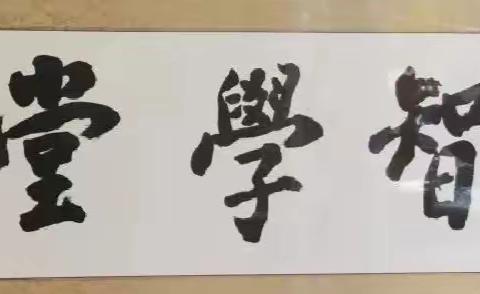 智學堂